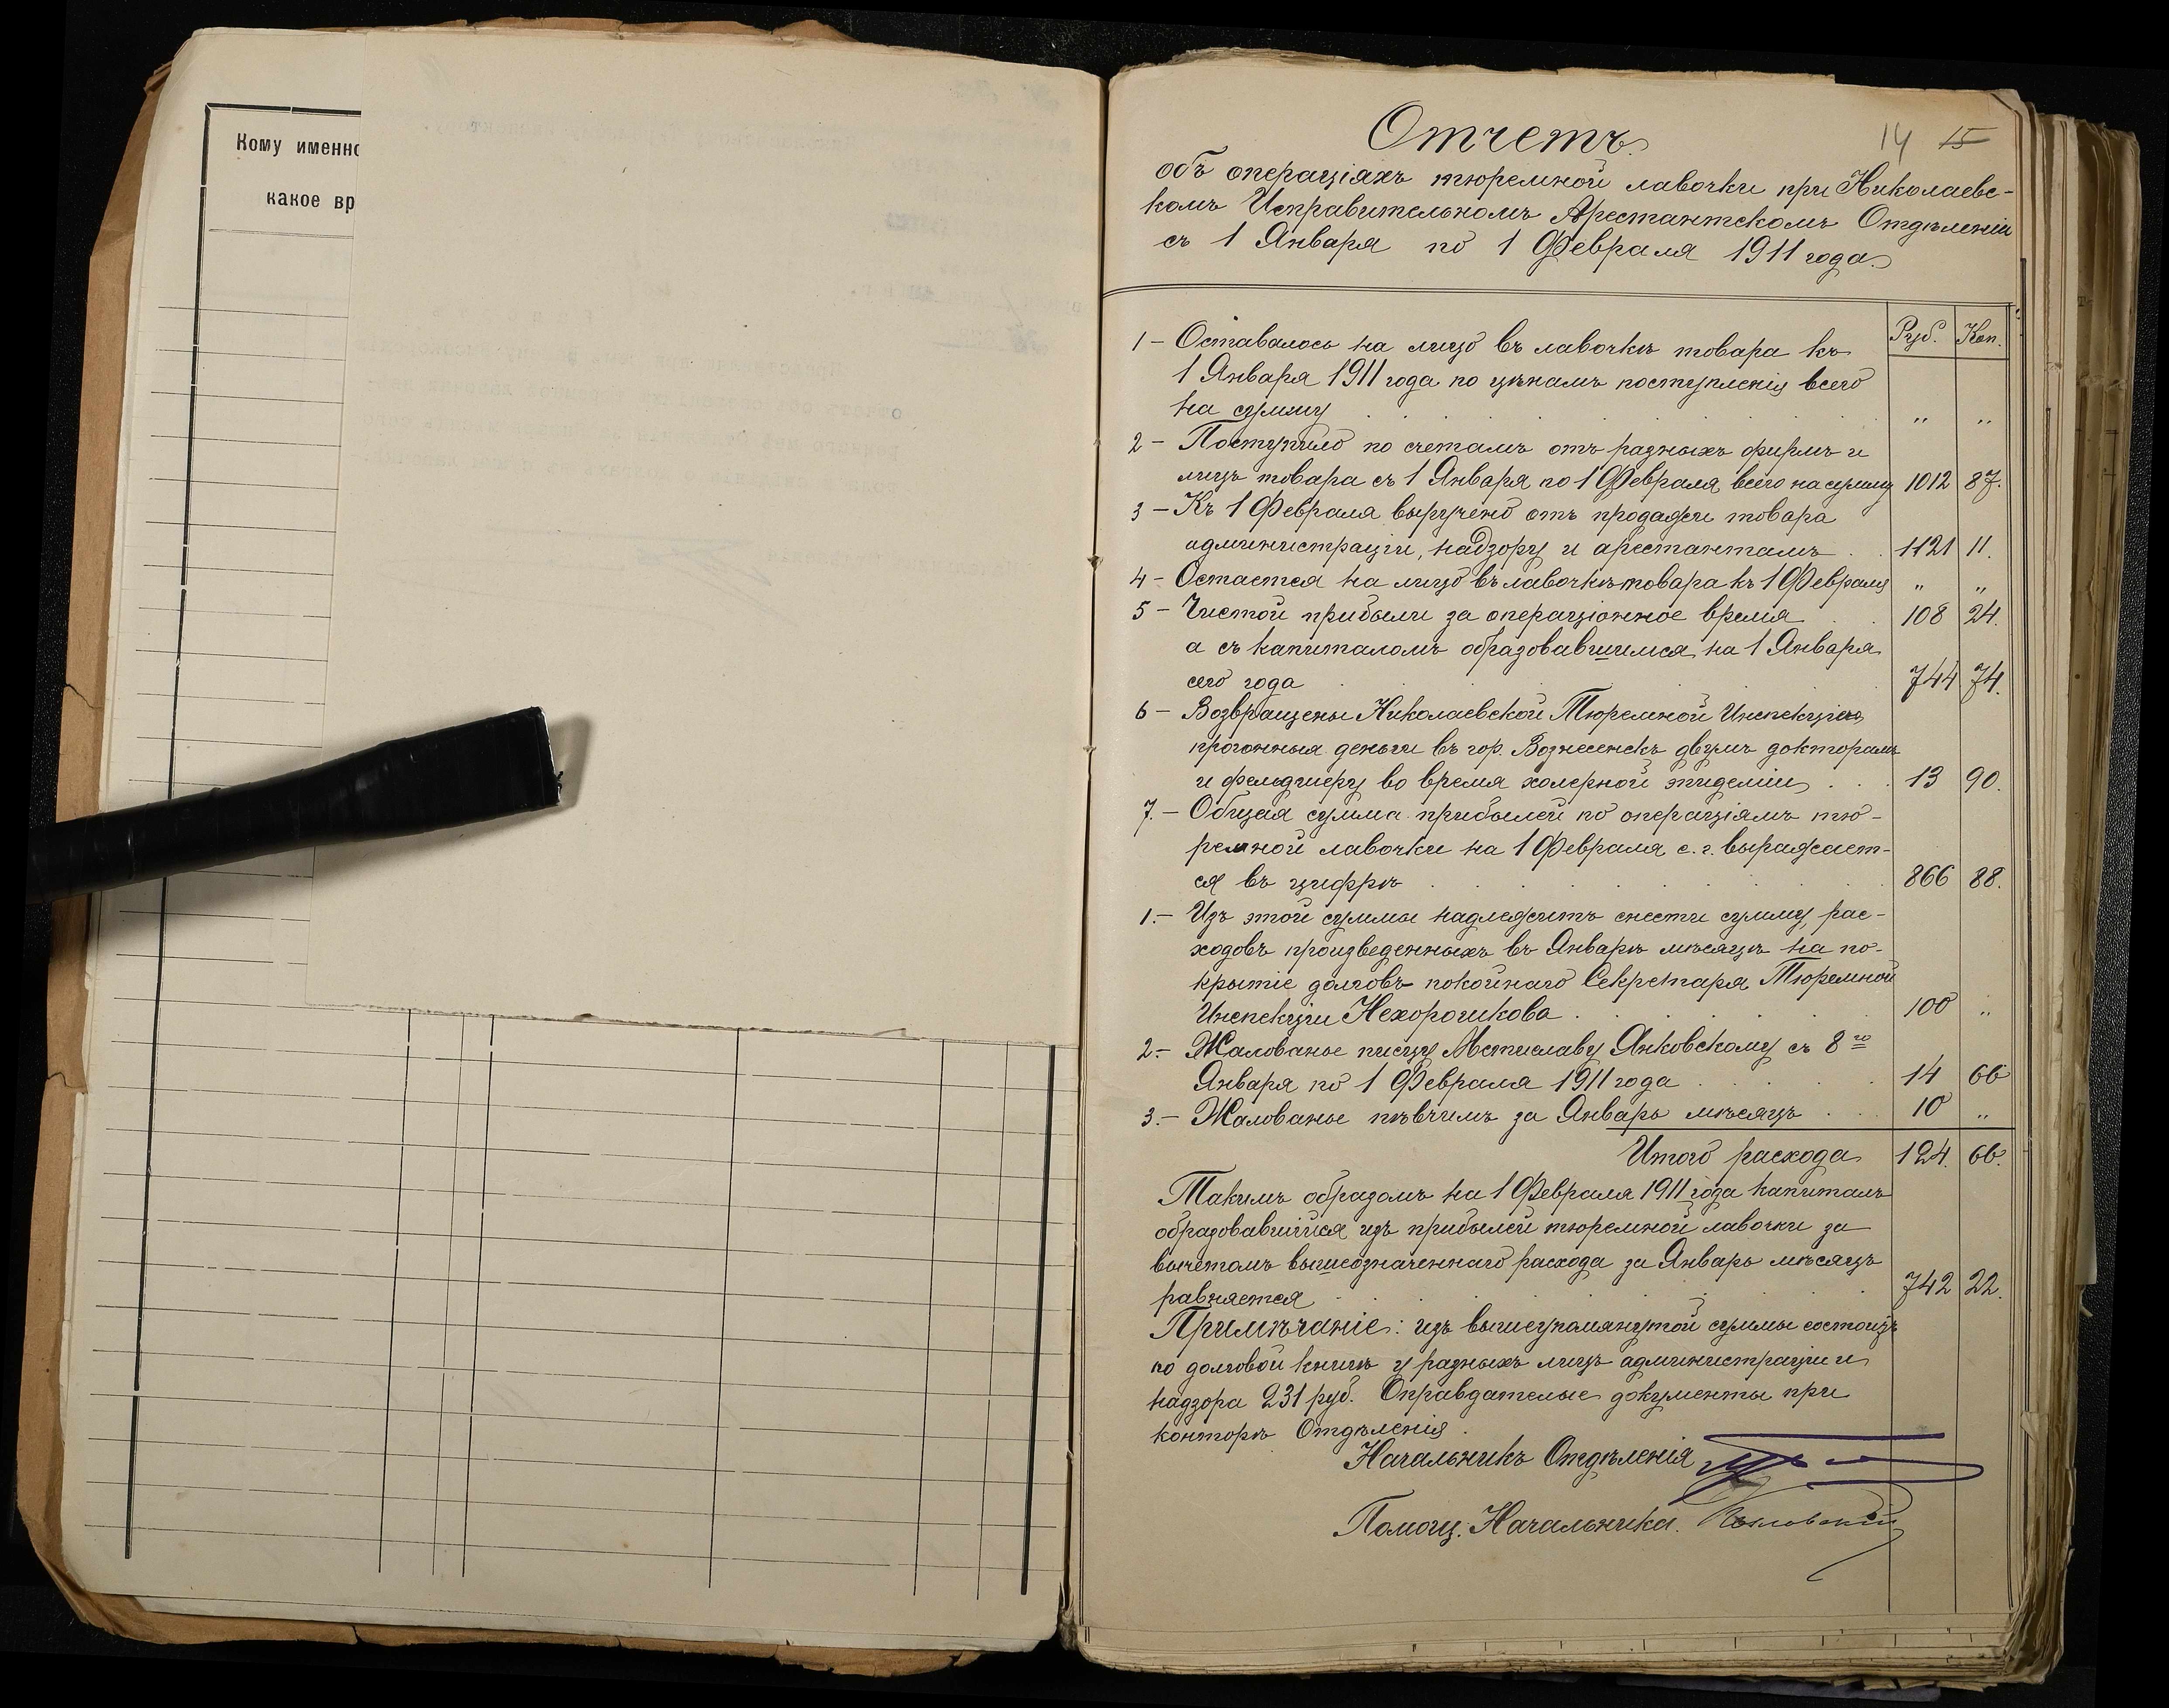 Кому именно
какое вр
14 15
Отчетъ
объ операціяхъ тюремной лавочки при Николаевс-
комъ Исправительномъ Арестантскомъ Отдѣленіи
съ 1 Января по 1 Февраля 1911 года.
Руб. Коп.
1 – Оставалось на лицо въ лавочкѣ товара къ
1 Января 1911 года по цѣнамъ поступленія всего
на сумму . . . . . . . „ „
2 – Поступило по счетамъ отъ разныхъ фирмъ и
лицъ товара съ 1 Января по 1 Февраля всего на сумму 1012 87.
3 – Къ 1 Февраля выручено отъ продажи товара
администраціи, надзору и арестантамъ . . 1121 11.
4 – Остается на лицо въ лавочкѣ товара къ 1 Февраля „ „
5 – Чистой прибыли за операціонное время . . 108 24.
а съ капиталомъ образовавшимся на 1 Января
сего года . . . . . . 744 74.
6 – Возвращены Николаевской Тюремной Инспекціею
прогонныя деньги въ гор. Вознесенскъ двумъ докторамъ
и фельдшеру во время холерной эпидеміи . . . 13 90.
7. – Общая сумма прибылей по операціямъ тю-
ремной лавочки на 1 Февраля с. г. выражает-
ся въ цифрѣ . . . . . . . 866 88.
1. – Изъ этой суммы надлежитъ снести сумму, рас-
ходовъ произведенныхъ въ Январѣ мѣсяцѣ на по-
крытіе долговъ покойнаго Секретаря Тюремной
Инспекціи Нехорошкова . . . . . . 100 „
2. – Жалованье писцу Мстиславу Янковскому съ 8го
Января по 1 Февраля 1911 года . . . . . 14 66
3. – Жалованье пѣвчимъ за Январь мѣсяцъ . . . 10 „
Итого расхода 124. 66.
Такимъ образомъ на 1 Февраля 1911 года капиталъ
образовавшійся изъ прибылей тюремной лавочки за
вычетомъ вышеозначеннаго расхода за Январь мѣсяцъ
равняется . . . . . . 742 22.
Примѣчаніе: изъ вышеупомянутой суммы состоитъ
по долговой книгѣ у разныхъ лицъ администраціи и
надзора 231 руб. Оправдателые документы при
конторѣ Отдѣленія.
Начальникъ Отдѣленія
Помощ. Начальника.